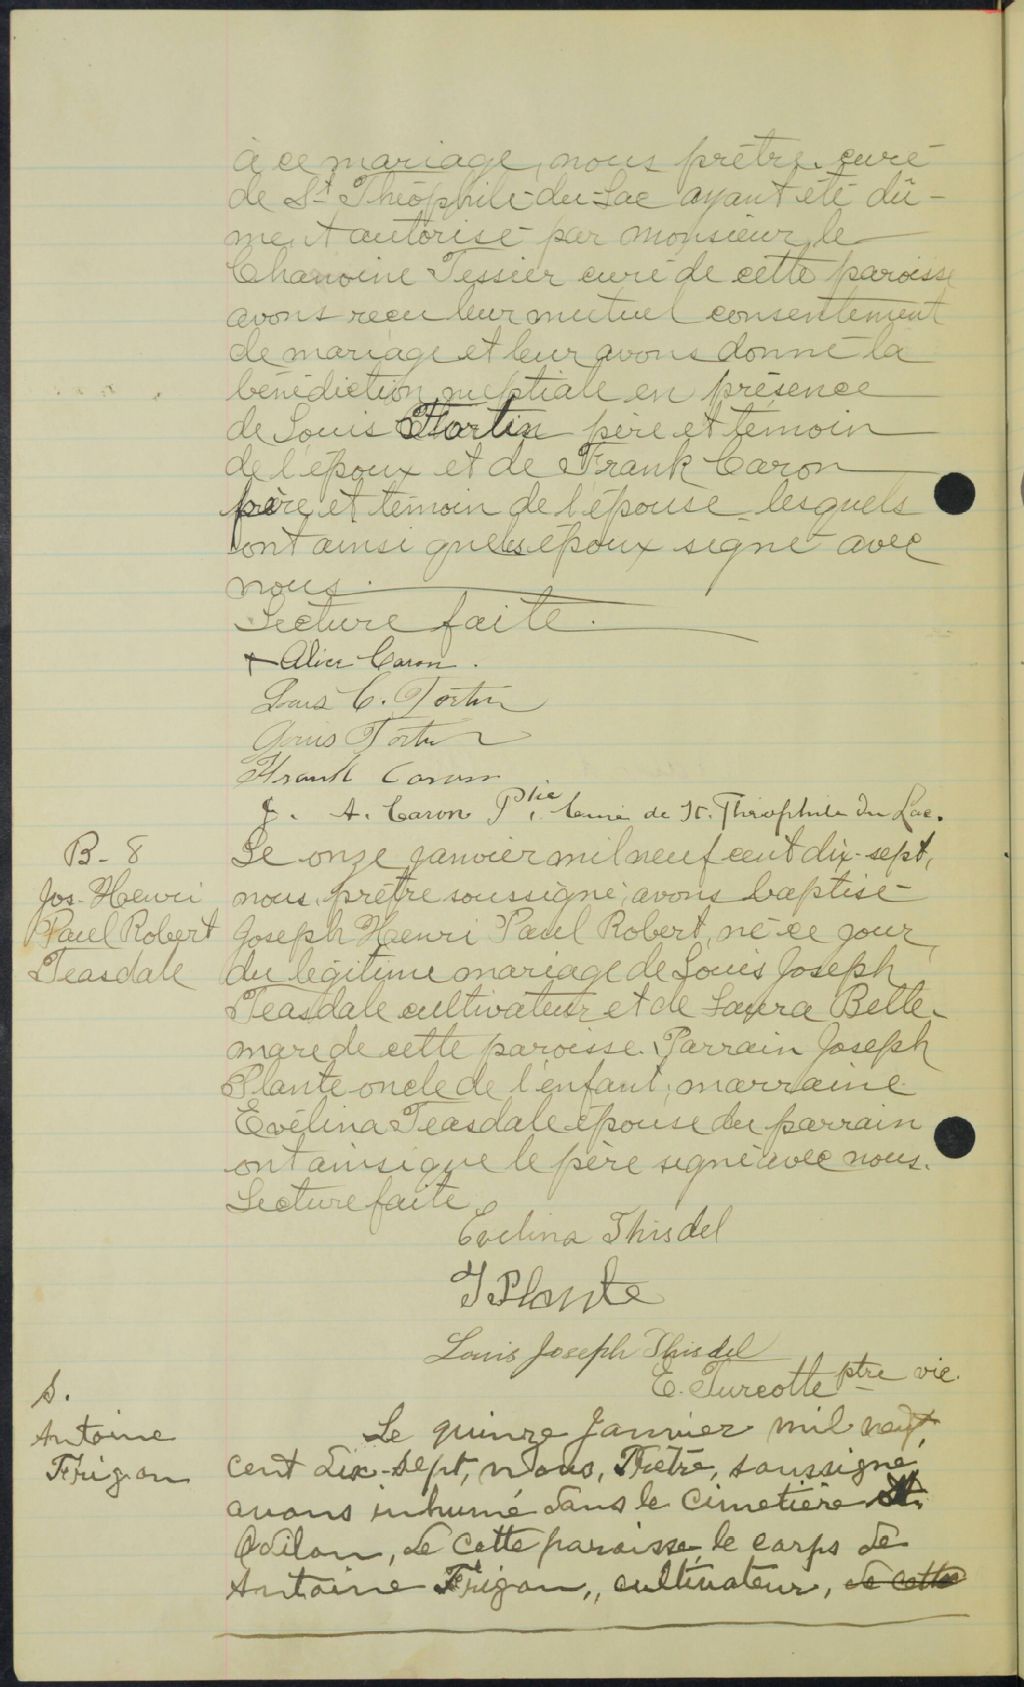 à ce mariage, nous prêtre curé
de St Théophile-du-Lac ayant été dû-
ment autorisé par monsieur le
Chanoine Tessier curé de cette paroisse
avons recu leur mutuel consentement
de mariage et leur avons donné la
bénédiction nuptiale en présence
de Louis Fortin père et témoin
de l'époux et de Frank Caron
père et témoin de l'épouse lesquels
ont ainsi que les époux signé avec
nous.
Lecture faite.
+ Alice Caron.
Louis C. Fortin
Louis Fortin
Frank Caron
J. A. Caron Ptre. Curé de St. Théophile du Lac.
B-8
Jos-Henri
Paul Robert
Teasdale
Le onze janvier mil neuf cent dix-sept,
nous, prêtre soussigné, avons baptisé
Joseph Henri Paul Robert, né ce jour,
du légitime mariage de Louis Joseph
Teasdale cultivateur et de Laura Belle-
mare de cette paroisse. Parrain Joseph
Plante oncle de l'enfant, marraine
Evélina Teasdale épouse du parrain
ont ainsi que le père signé avec nous.
Lecture faite
Evelina Thisdel
J Plante
Louis Joseph Thisdel
E. Turcotte ptre vic.
S.
Antoine
Frigon
Le quinze Janvier mil neuf
cent dix-sept, nous, Prêtre, soussigné,
avons inhumé dans le cimetière St.
Odilon, de cette paroisse, le corps de
Antoine Frigon,, cultivateur, de cette